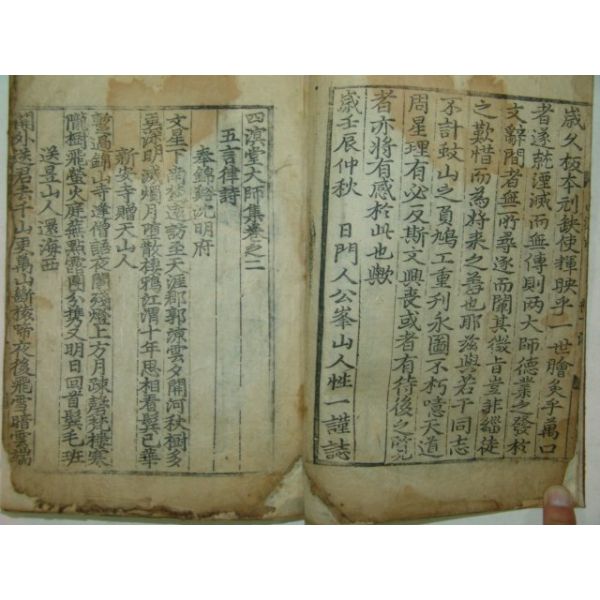 歲久板本刓缺使輝映乎一世膾炙乎萬口
者遂就湮滅而無傳則两大師德業之發於
文辭間者無所尋逐而闡其徵旨豈非緇徒
之歎惜而為將来之羞也耶玆與若干同志
不計蚊山之負鳩工重刋永圖不朽噫天道
周星理有必反斯文興喪或者有待後之覽
者亦將有感於此也歟
歲壬辰仲秋 日門人公峯山人性一謹誌
四溟堂大師集卷之二
五言律詩
奉錦谿沈明府
文星下南楚遠訪至天涯郡郭凉雲夕開河秋樹多
深明滅燭月堕散棲鴉江渭十年思相看鬂已華
新安寺贈天山人
暫過錦山寺逢僧語夜闌殘燈上方月疎磬梵樓寒
隴樹飛螢火庭蕪點露團分携又明日回首鬂毛班
送昱山人還海西
關外送君去千山更萬山斷猿啼夜後飛雪暗雲端